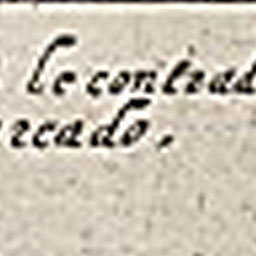 le contrad
ercado.